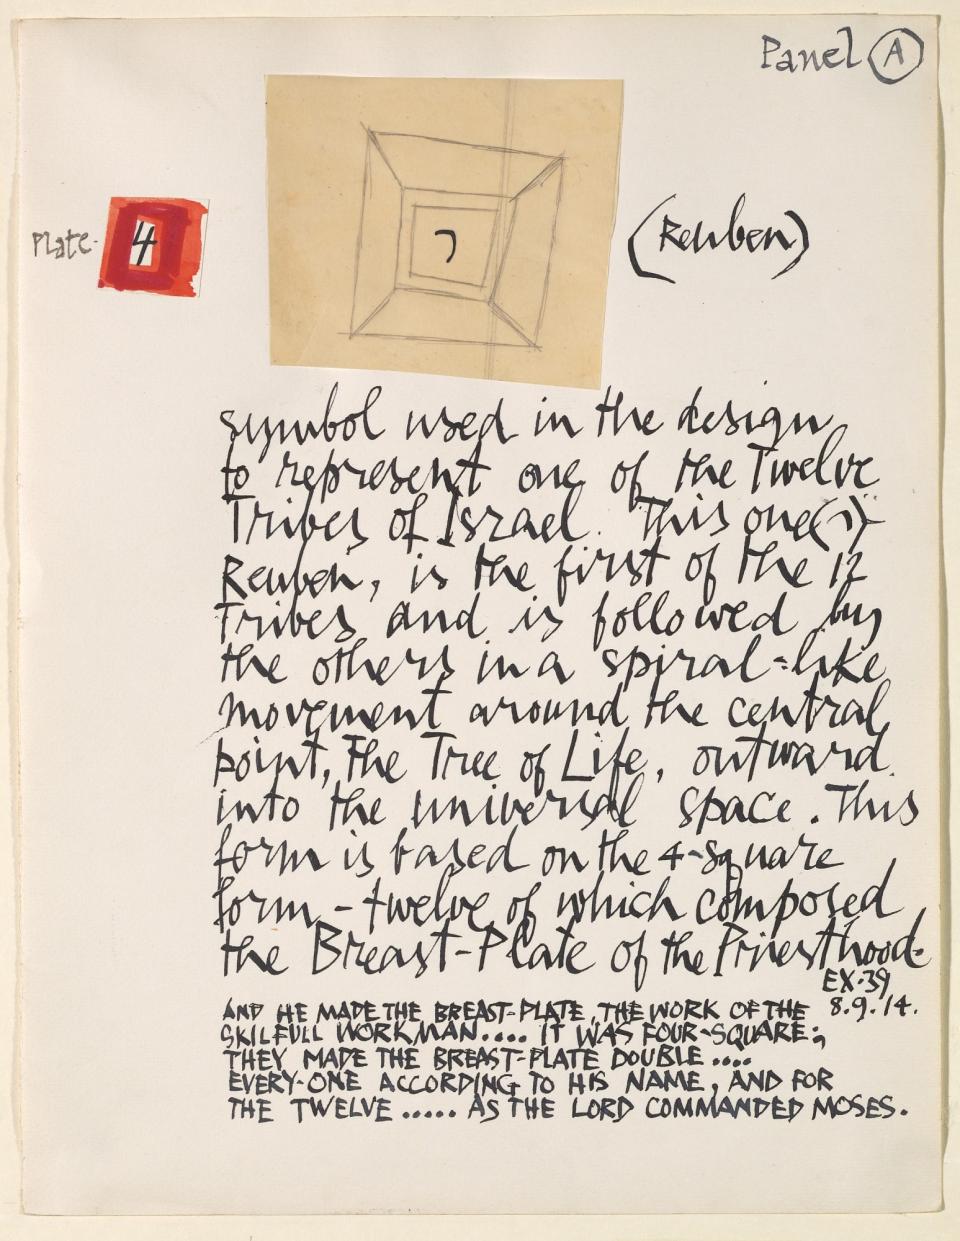 Panel A
Plate - 4
ר
(Reuben)
symbol used in the design
to represent one of the Twelve
Tribes of Israel. This one (ר)-
Reuben, is the first of the 12
Tribes and is followed by
the others in a spiral-like
movement around the central
point, The Tree of Life, outward
into the universal space. This
form is based on the 4-square
form - twelve of which composed
the Breast-Plate of the Priesthood.
EX. 39
8.9.14.
AND HE MADE THE BREAST-PLATE, THE WORK OF THE
SKILFULL WORKMAN.... IT WAS FOUR-SQUARE;
THEY MADE THE BREAST-PLATE DOUBLE ....
EVERY-ONE ACCORDING TO HIS NAME, AND FOR
THE TWELVE ..... AS THE LORD COMMANDED MOSES.